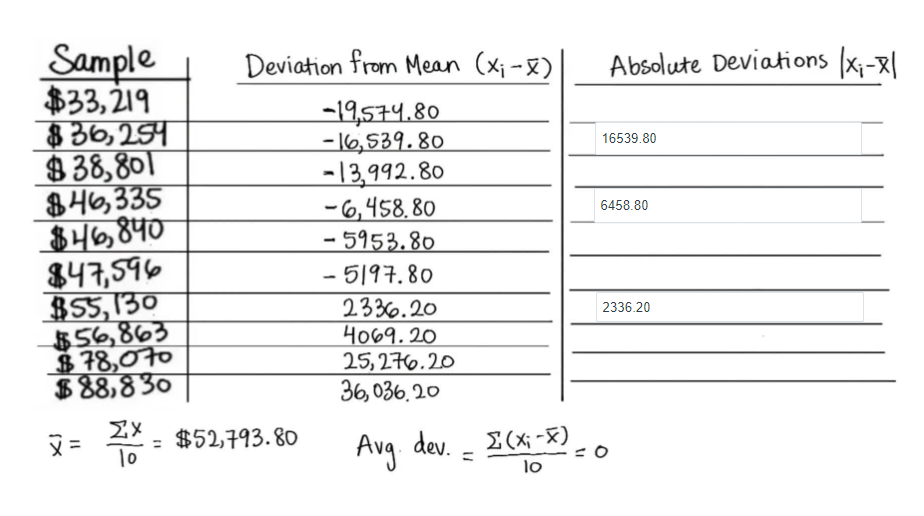 Sample Deviation from Mean (xᵢ - x̄) Absolute Deviations |xᵢ - x̄|
$33,219 -19,574.80
$36,254 -16,539.80 16539.80
$38,801 -13,992.80
$46,335 -6,458.80 6458.80
$46,840 -5953.80
$47,596 -5197.80
$55,130 2336.20 2336.20
$56,863 4069.20
$78,070 25,276.20
$88,830 36,036.20
x̄ = Σx/10 = $52,793.80 Avg. dev. = Σ(xᵢ - x̄)/10 = 0